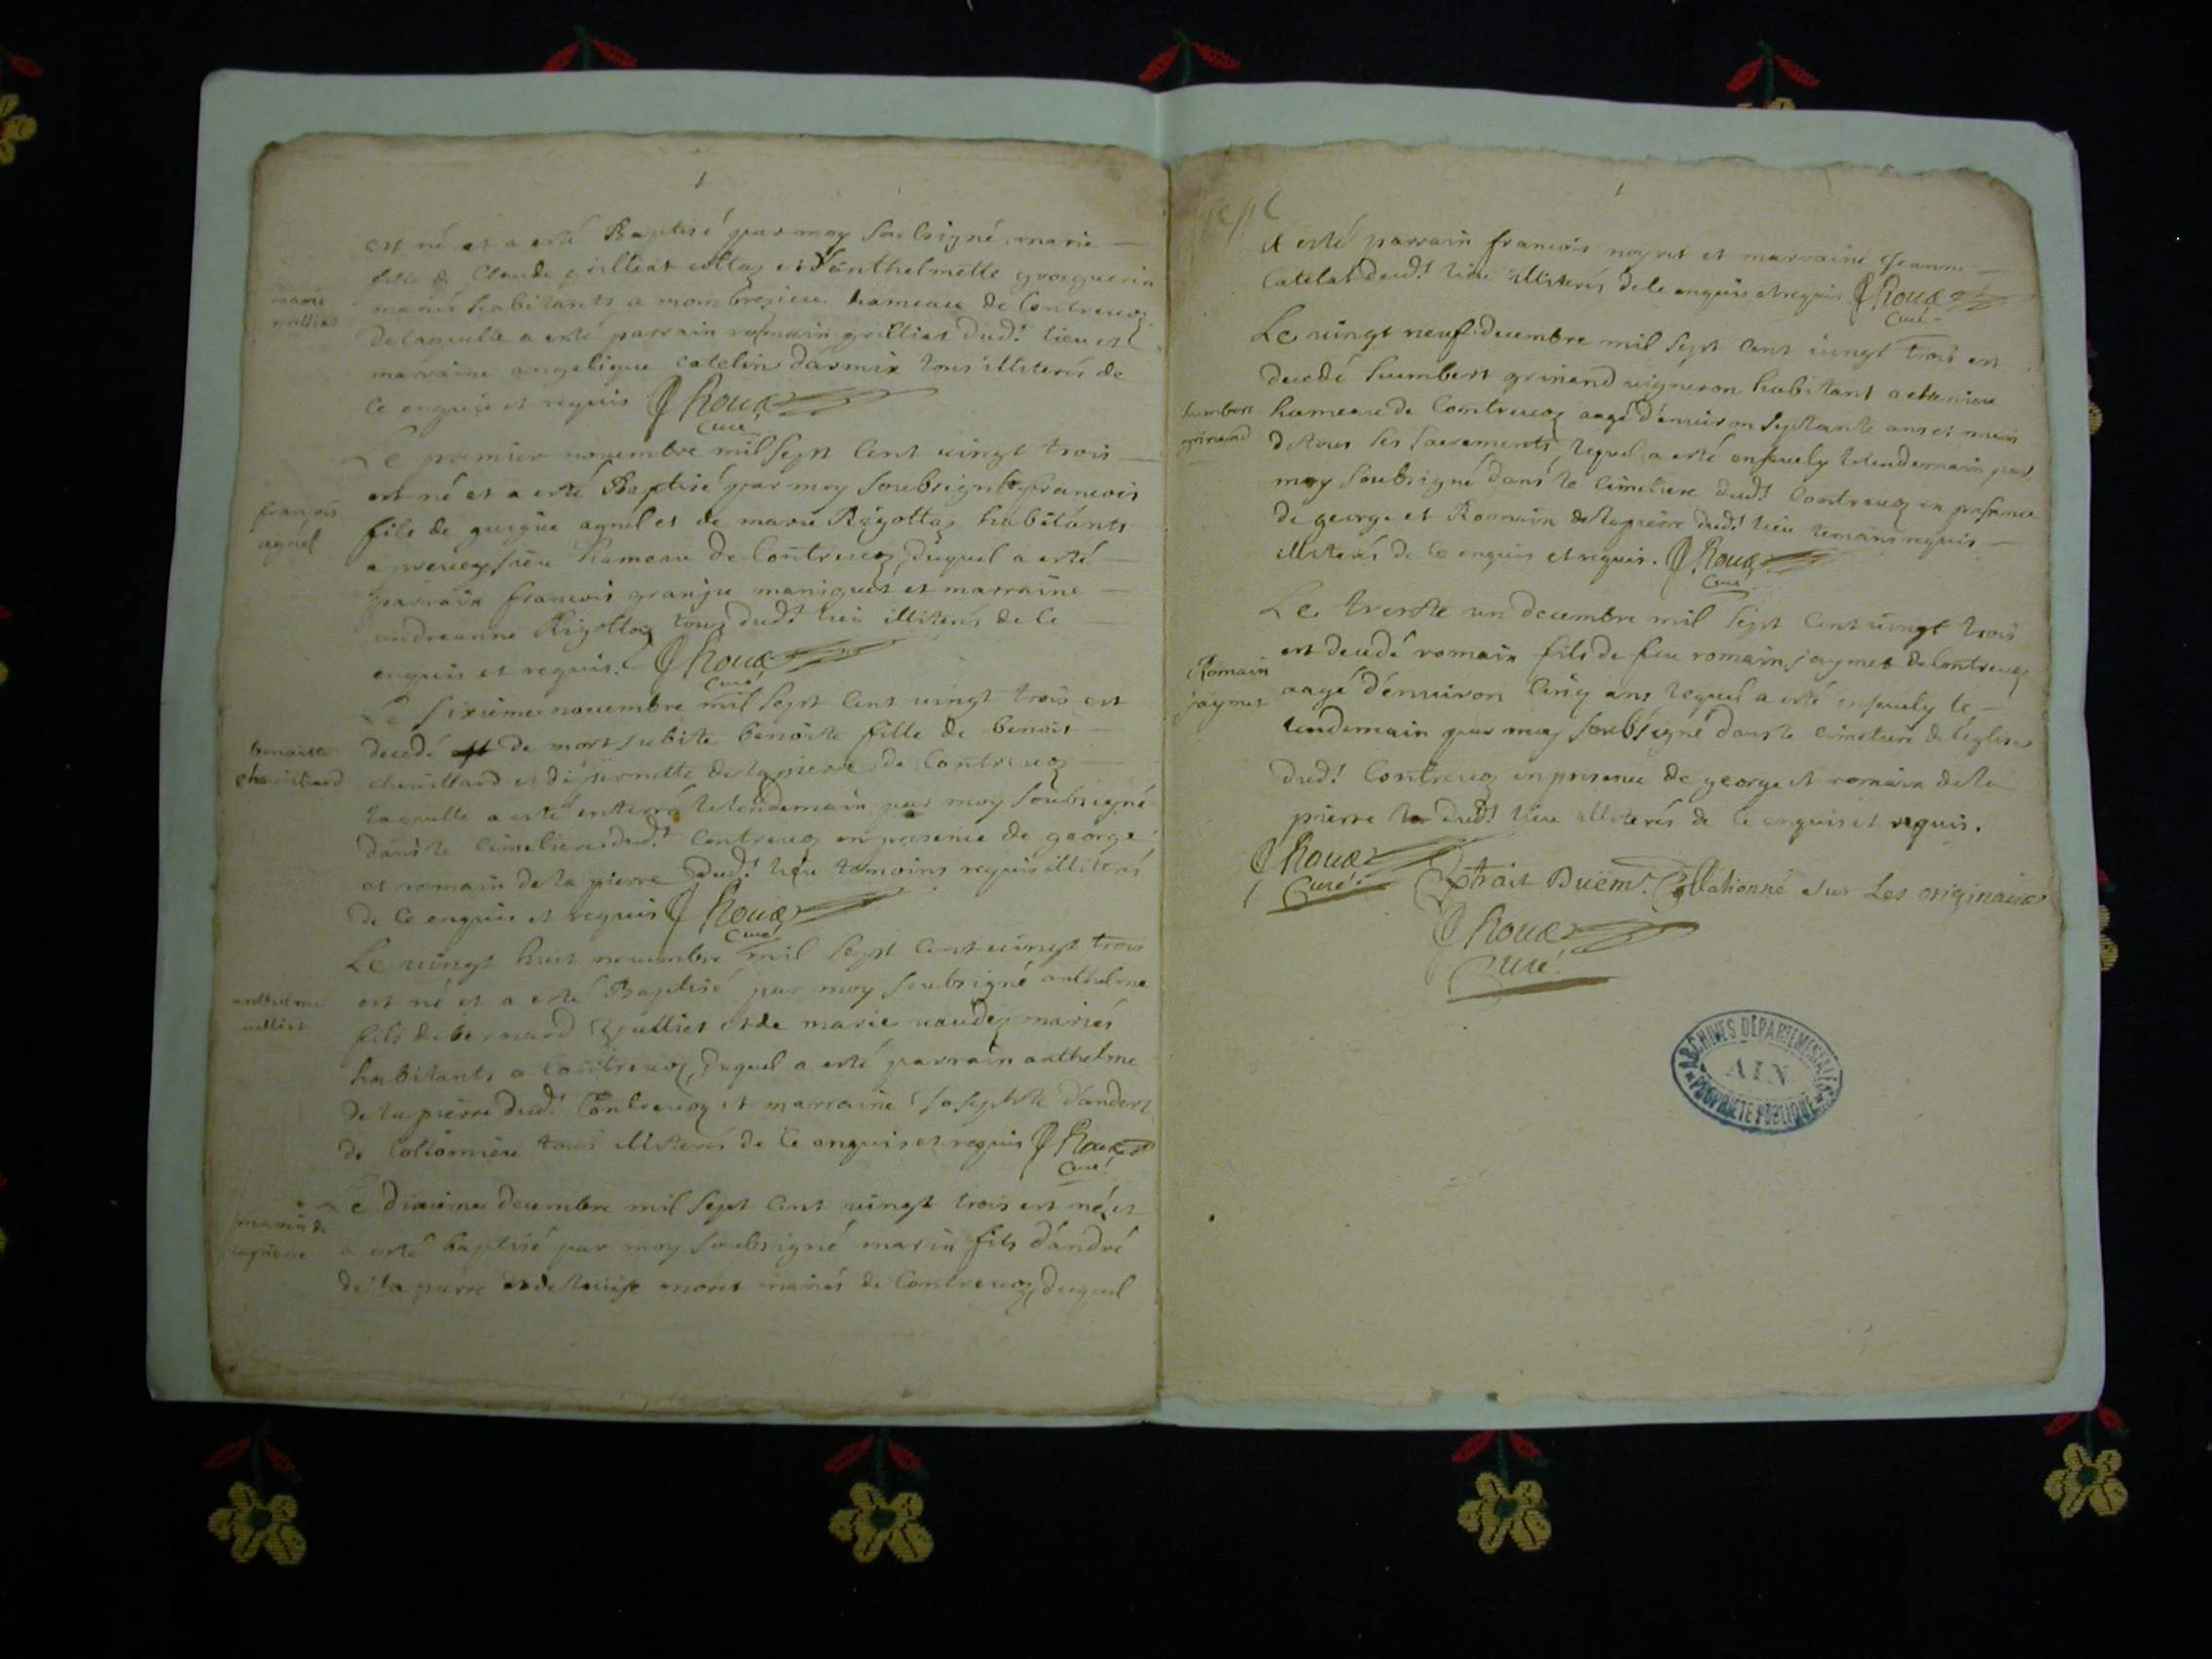 est né et a esté Baptisé par moy soubsigné marie
fille de Claude grilliet collaz et d'anthelmette grosguerin
mariés habitants a mombresieu hameau de Contrevoz
de laquelle a esté parrain romain grilliet dud! lieu et
marraine angelique catelin d'armix tous illiterés de
ce enquis et requis J Roux
Curé
marie
grilliet
Le premier novembre mil sept cent vingt trois
est né et a esté Baptisé par moy soubsigné francois
fils de guigue agnel et de marie Rigottaz habitants
a preveyssieu hameau de Contrevoz, duquel a esté
parrain francois granju maniguet et marraine
andreanne Rigottaz tous dud! lieu illiterés de ce
enquis et requis. J Roux
Curé
françois
agnel
Le sixieme novembre mil sept cent vingt trois est
decedé de mort subite benoite fille de benoit
chevillard et de pernette de la pierre de Contrevoz
laquelle a esté enterré le lendemain par moy soubsigné
dans le cimetiere dud! Contrevoz en presence de george
et romain de la pierre dud! lieu temoins requis illiterés
de ce enquis et requis J Roux
Curé
benoitte
chevilliard
Le vingt huit novembre mil sept cent vingt trois
est né et a esté Baptisé par moy soubsigné anthelme
fils de bernard vulliet et de marie vaudez mariés
habitants a Contrevoz, duquel a esté parrain anthelme
de la pierre dud! Contrevoz et marraine Josephte d'andert
de Colionnieu tous illiterés de ce enquis et requis J Roux
Curé
anthelme
vulliet
Le dixieme decembre mil sept cent vingt trois est né et
a esté baptisé par moy soubsigné marin fils d'andré
de la pierre et de Louise moret mariés de Contrevoz, duquel
marin de
lapierre
a esté parrain francois noyret et marraine Jeanne
Catelas dud! lieu illiterés de ce enquis et requis J Roux
Curé
Le vingt neuf decembre mil sept cent vingt trois est
decedé humbert grinand vigneron habitant a
hameau de Contrevoz aagé d'environ septante ans et muni
de tous les sacrements, lequel a esté ensevely le lendemain par
moy soubsigné dans le cimetiere dud! Contrevoz en presence
de george et Romain de la pierre dud! lieu temoins requis
illiterés de ce enquis et requis. J Roux
Curé
humbert
grinand
Le trente un decembre mil sept cent vingt trois
est decedé romain fils de feu romain jaymet de Contrevoz
aagé d'environ cinq ans lequel a esté ensevely le
lendemain par moy soubsigné dans le cimetiere de l'eglise
dud! Contrevoz en presence de george et romain de la
pierre dud! lieu illiterés de ce enquis et requis.
J Roux
Curé
Romain
jaymet
Extrait Duëm! Collationné sur Les originaux
J Roux
Curé
ARCHIVES DÉPARTEMENTALES
AIN
PROPRIÉTÉ PUBLIQUE